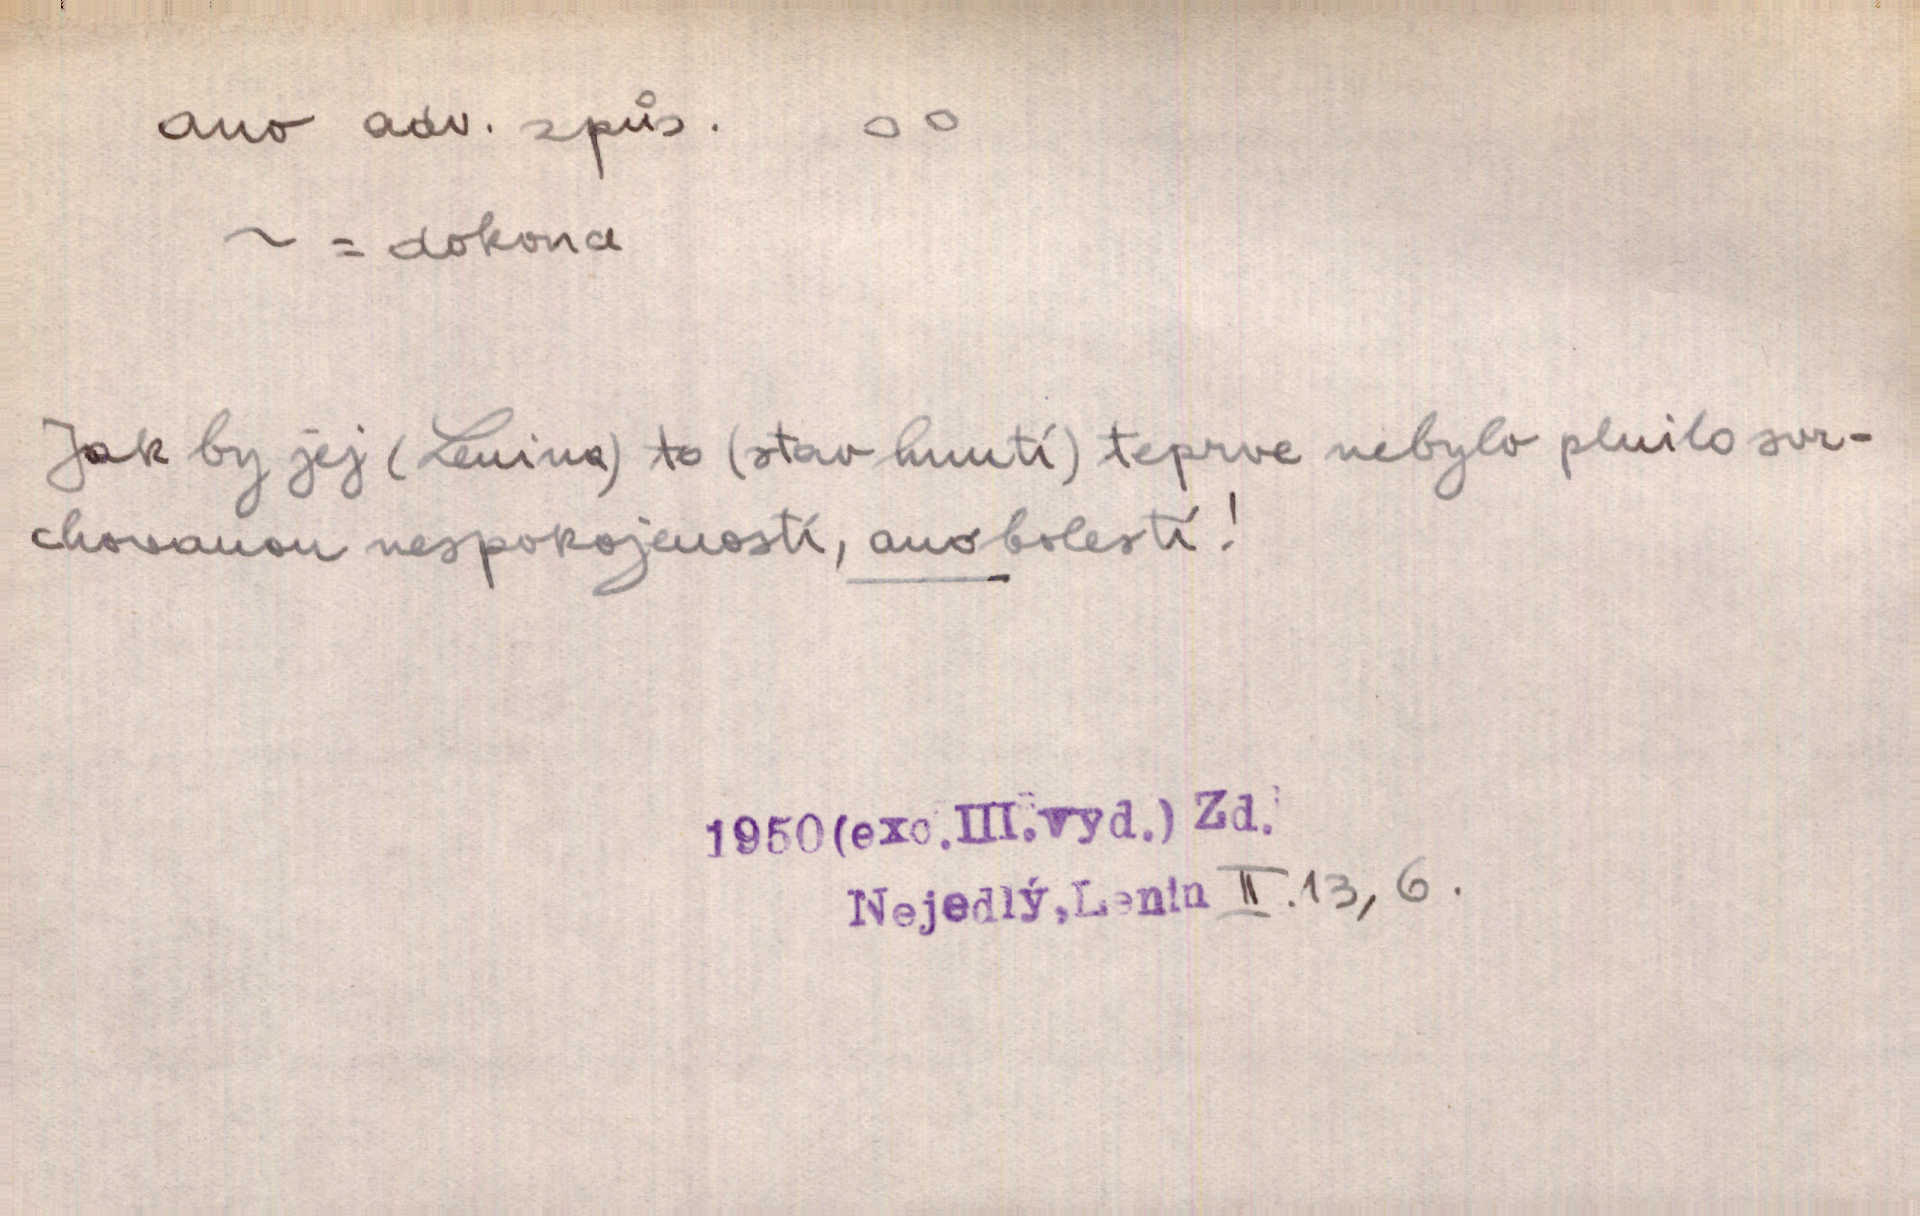 ano adv. způs. oo
~ = dokona
Jak by jej (Lenina) to (stav hnutí) teprve nebylo plnilo svr-
chovanou nespokojeností, ano bolestí!
1950 (exc. III. vyd.) Zd.
Nejedlý, Lenin II. 13, 6.